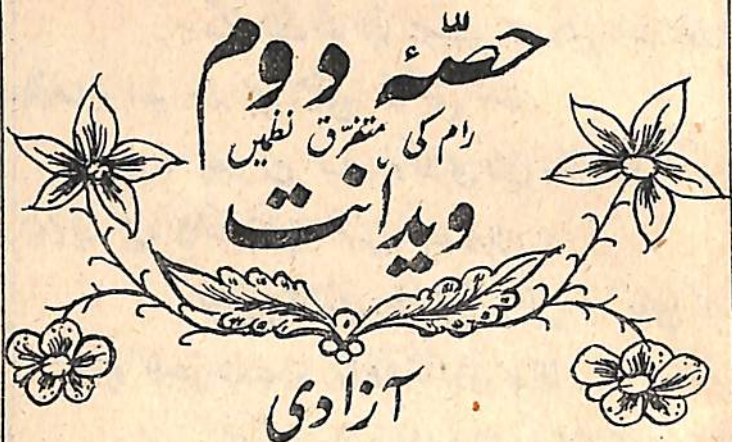 حصّہٴ دوم
رام کی متفرّق نظمیں
ویدانت
آزادی